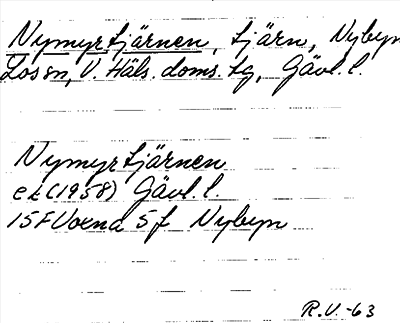 Nymyrtjärnen, tjärn, Nybyn
Los sn, V. Häls. doms. tg, Gävl. l.
Nymyrtjärnen
ek (1958) Gävl. l.
15F Voxna 5f Nybyn
R.V. -63